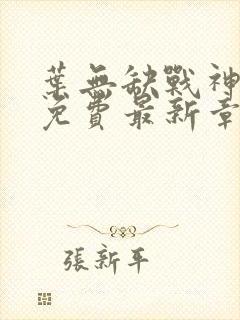 葉無缺戰神
免費最新章
張新年